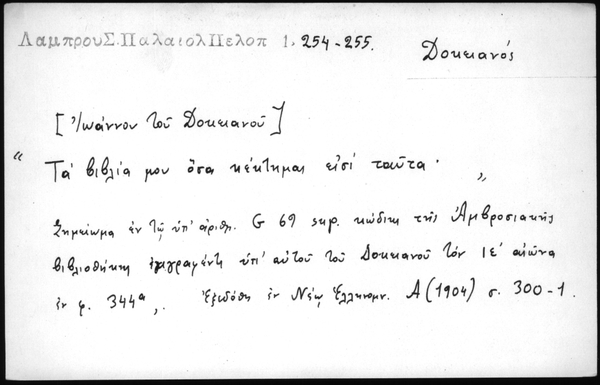 ΛαμπρουΣ.ΠαλαιολΠελοπ 1, 254-255.
Δοκειανός
[Ἰωάννου τοῦ Δοκειανοῦ]
" Τὰ βιβλία μου ὅσα κέκτημαι εἰσί ταῦτα · "
Σημείωμα ἐν τῷ ὑπ' ἀριθ. G 69 sup. κώδικι τῆς Ἀμβροσιακῆς
βιβλιοθήκης ἐγγραφέντι ὑπ' αὐτοῦ τοῦ Δοκειανοῦ τὸν ΙΕ' αἰῶνα
ἐν φ. 344ᵃ,. Ἐξεδόθη ἐν Νέῳ Ἑλληνομν. Α (1904) σ. 300-1.